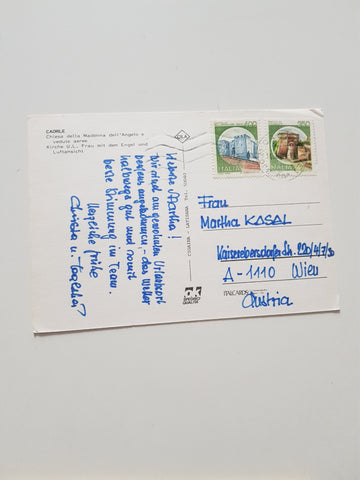 CAORLE
Chiesa della Madonna dell'Angelo e
vedute aeree
Kirche U.L. Frau mit dem Engel und
Luftansicht
Liebe Martha!
Wir sind am gewohnten Urlaubsort
bestens angekommen - das Wetter
halbwegs gut und somit
beste Stimmung im Team.
Herzliche Grüße
Christa u.
400
ITALIA
200
ITALIA
Frau
Martha KASAL
Kaiserebersdorfer Str. 220/4/7/30
A-1110 Wien
Austria
OK
ITALCARDS